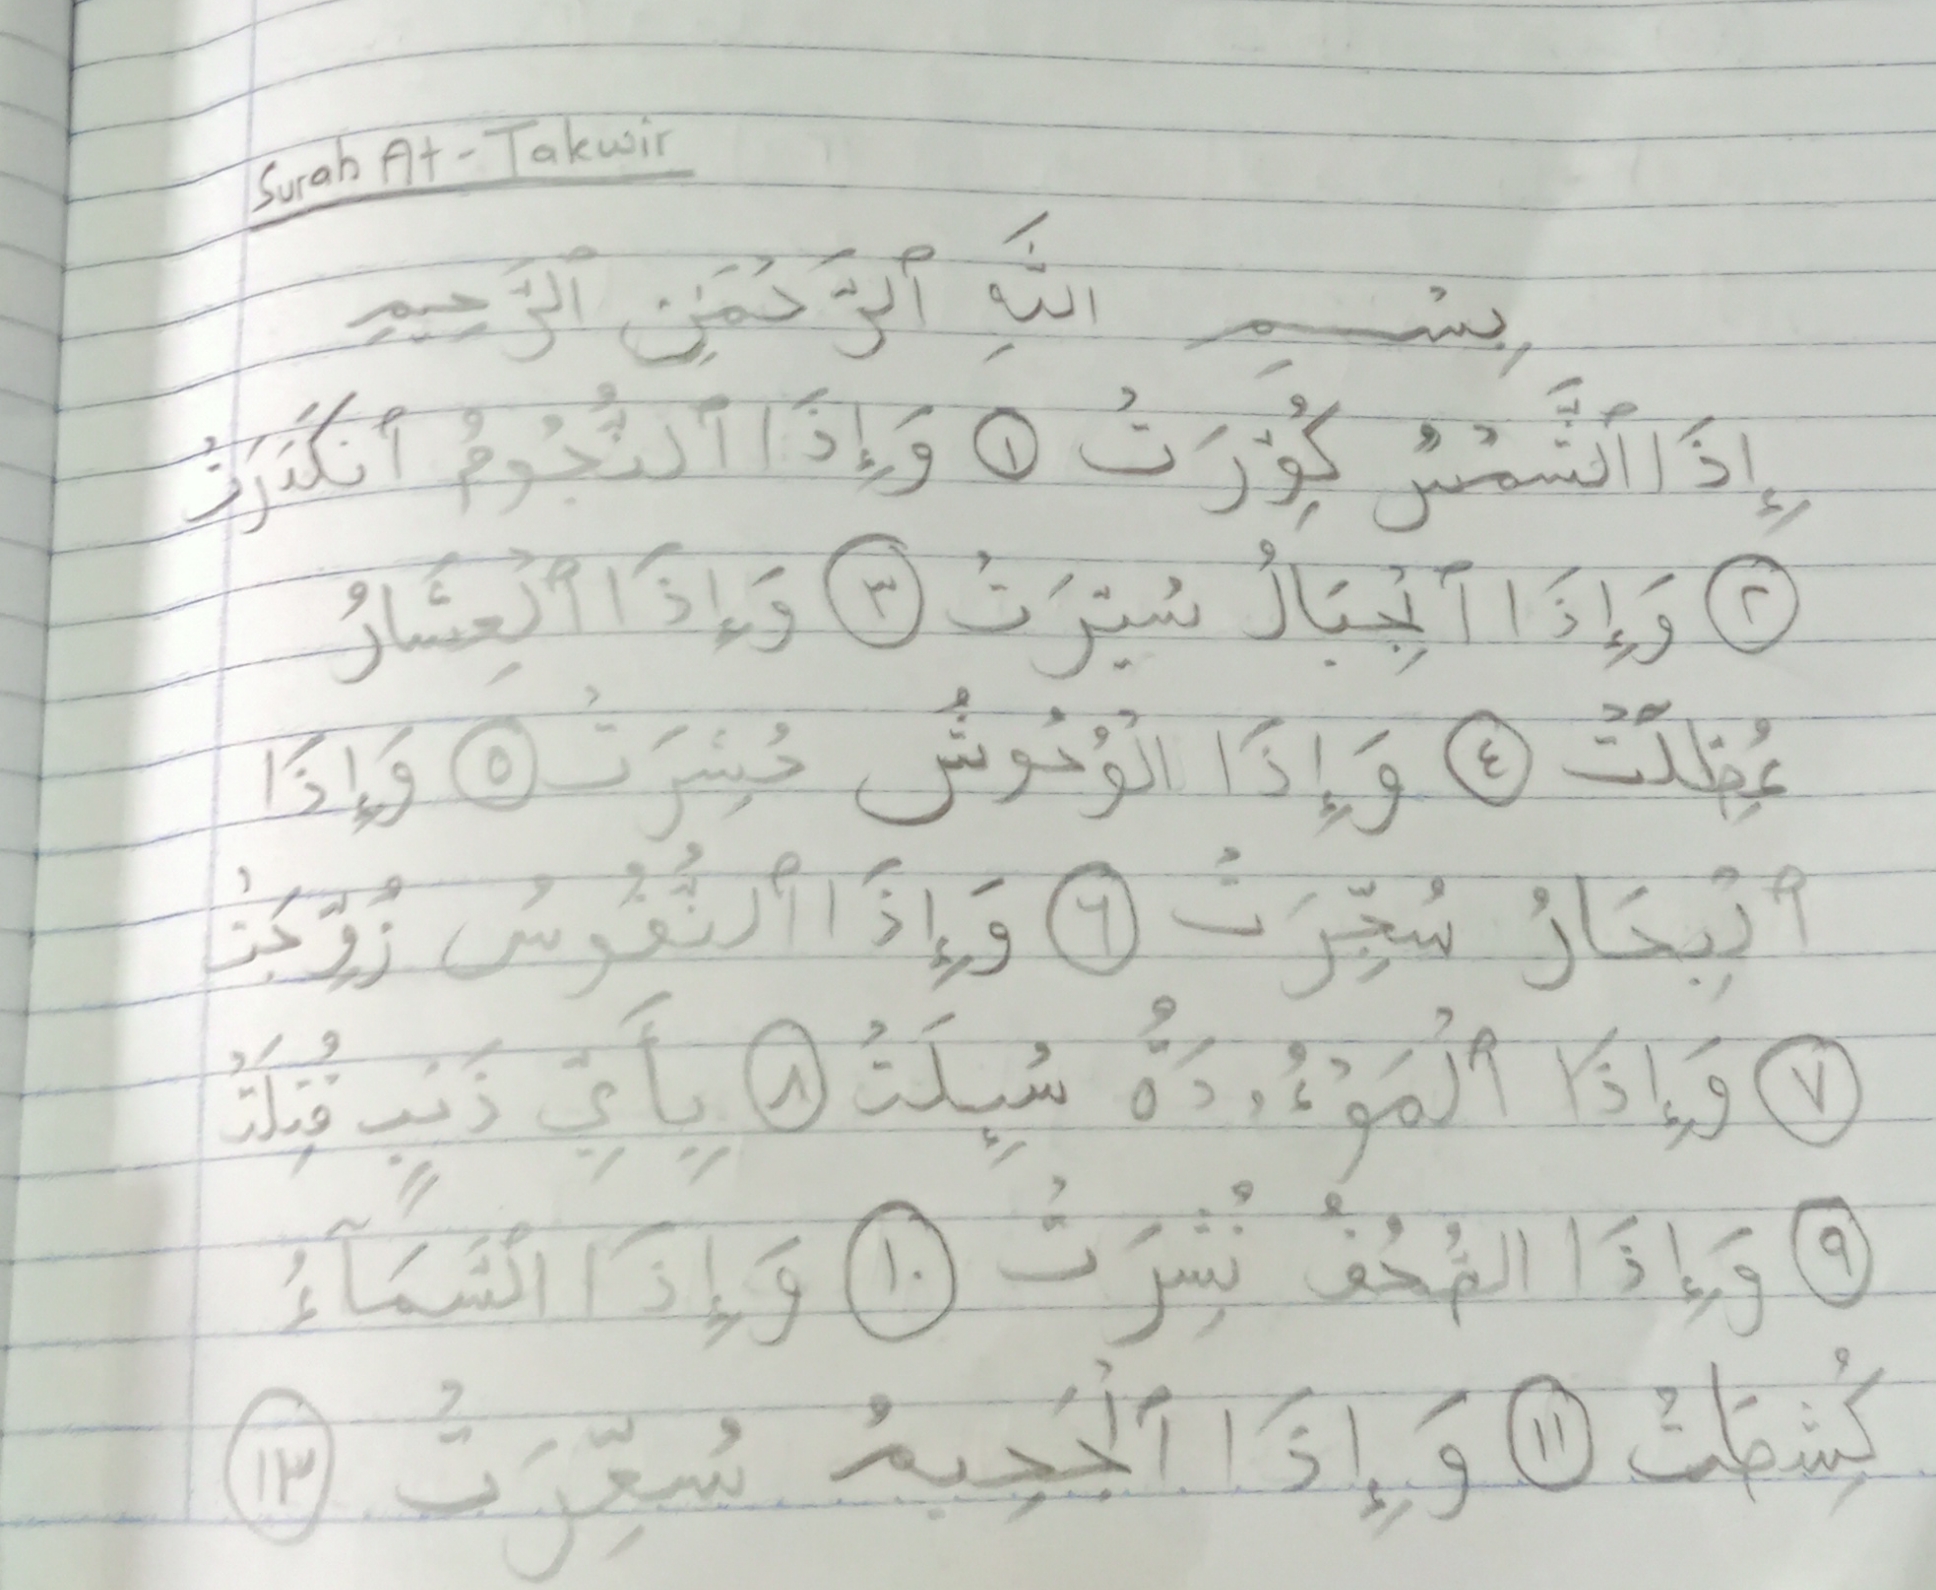 Surah At-Takwir
بِسْمِ اللَّهِ ٱلرَّحْمَنِ ٱلرَّحِيمِ
إِذَا ٱلشَّمْسُ كُوِّرَتْ ١ وَإِذَا ٱلنُّجُومُ ٱنكَدَرَتْ
٢ وَإِذَا ٱلْجِبَالُ سُيِّرَتْ ٣ وَإِذَا ٱلْعِشَارُ
عُطِّلَتْ ٤ وَإِذَا الْوُحُوشُ حُشِرَتْ ٥ وَإِذَا
ٱلْبِحَارُ سُجِّرَتْ ٦ وَإِذَا ٱلنُّفُوسُ زُوِّجَتْ
٧ وَإِذَا ٱلْمَوْءُ,دَةُ سُئِلَتْ ٨ بِأَيِّ ذَنۢبٍ قُتِلَتْ
٩ وَإِذَا الصُّحُفُ نُشِرَتْ ١٠ وَإِذَا السَّمَآءُ
كُشِطَتْ ١١ وَإِذَا ٱلْجَحِيمُ سُعِّرَتْ ١٣